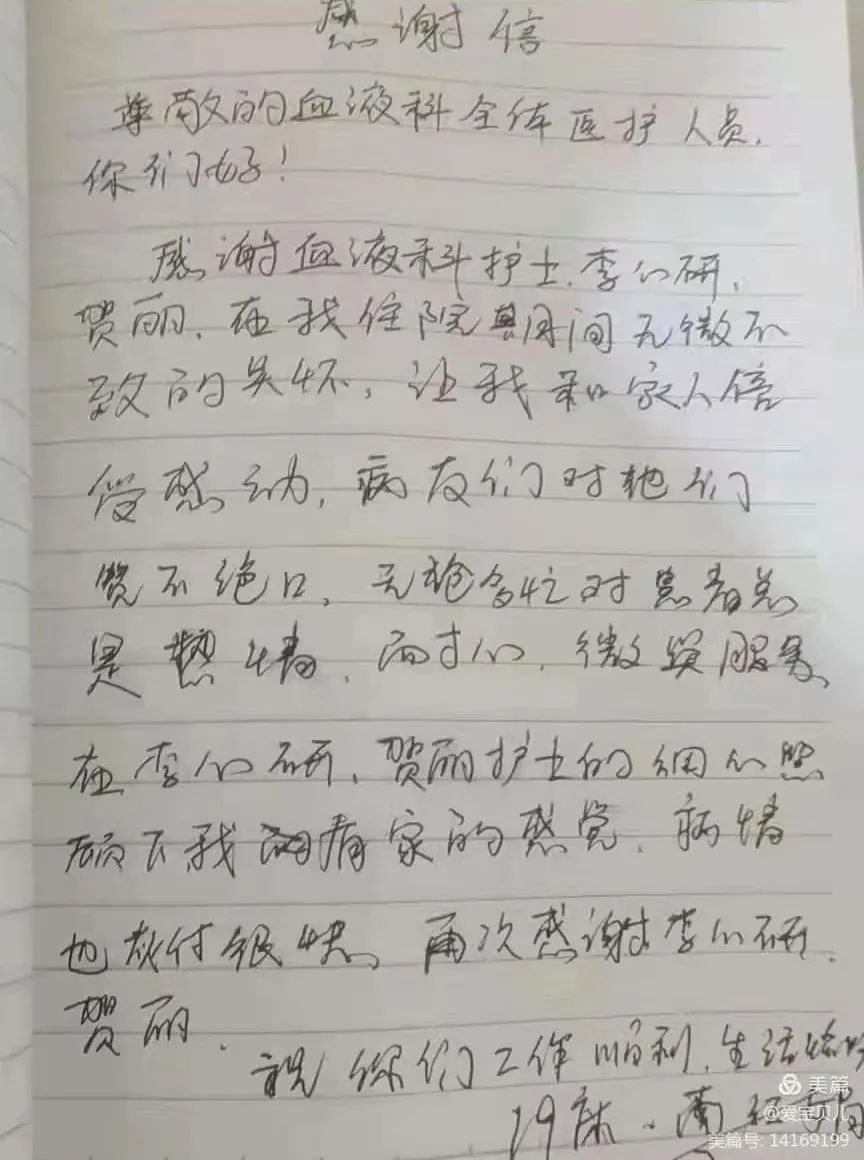 感谢信
尊敬的血液科全体医护人员,
你们好!
感谢血液科护士.李心研,
贺丽.在我住院期间无微不
致的关怀,让我和家人倍
受感动,病友们对她们
赞不绝口,无论多忙对患者总
是热情.而
,微笑服务、
在李心研、贺丽护士的细心照
顾下我有家的感觉.病情
也恢付很快、再次感谢李心研.
贺丽.
祝你们工作顺利.生活愉
19床、
美篇
@爱宝贝儿
美篇号: 14169199